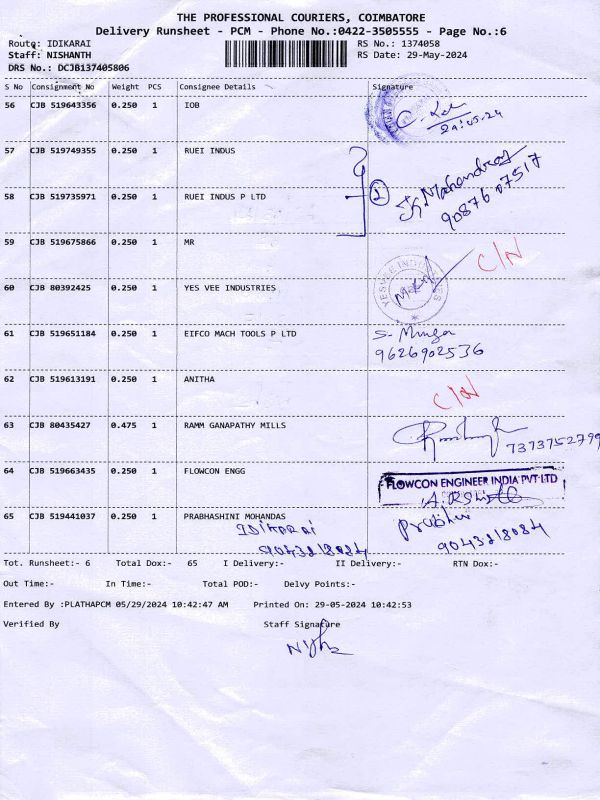 THE PROFESSIONAL COURIERS, COIMBATORE
Delivery Runsheet - PCM - Phone No.:0422-3505555 - Page No.:6
Route: IDIKARAI RS No.: 1374058
Staff: NISHANTH RS Date: 29-May-2024
DRS No.: DCJB137405806
S No Consignment No Weight PCS Consignee Details Signature
56 CJB 519643356 0.250 1 IOB
29.05.24
57 CJB 519749355 0.250 1 RUEI INDUS
58 CJB 519735971 0.250 1 RUEI INDUS P LTD 2 Mahendran
9087607517
59 CJB 519675866 0.250 1 MR C/N
60 CJB 80392425 0.250 1 YES VEE INDUSTRIES YESVEE INDUSTRIES
61 CJB 519651184 0.250 1 EIFCO MACH TOOLS P LTD
9626902536
62 CJB 519613191 0.250 1 ANITHA C/N
63 CJB 80435427 0.475 1 RAMM GANAPATHY MILLS 7373752799
64 CJB 519663435 0.250 1 FLOWCON ENGG FLOWCON ENGINEER INDIA PVT LTD
65 CJB 519441037 0.250 1 PRABHASHINI MOHANDAS Prabhu
Idikarai 9043218084
9043218084
Tot. Runsheet:- 6 Total Dox:- 65 I Delivery:- II Delivery:- RTN Dox:-
Out Time:- In Time:- Total POD:- Delvy Points:-
Entered By :PLATHAPCM 05/29/2024 10:42:47 AM Printed On: 29-05-2024 10:42:53
Verified By Staff Signature